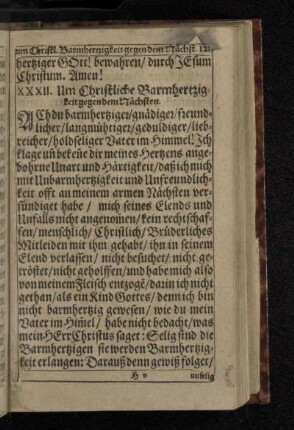 um Christl. Barmhertzigkeit gegen dem Nächst. 121
hertziger GOtt! bewahren/ durch JEsum
Christum. Amen!
XXXII. Um Christliche Barmhertzig-
keit gegen dem Nächsten.
ACh du barmhertziger/ gnädiger/ freund-
licher/ langmühtiger/ geduldiger/ lieb-
reicher/ holdseliger Vater im Himmel! Jch
klage uñ bekeñe dir meines Hertzens ange-
bohrne Unart und Härtigkeit/ daß ich mich
mit Unbarmhertzigkeit und Unfreundlich-
keit offt an meinem armen Nächsten ver-
sündiget habe/ mich seines Elends und
Unfalls nicht angenom̃en/ kein rechtschaf-
fen/ menschlich/ Christlich/ Brüderliches
Mitleiden mit ihm gehabt/ ihn in seinem
Elend verlassen/ nicht besuchet/ nicht ge-
tröstet/ nicht geholffen/ und habe mich also
von meinem Fleisch entzogẽ/ darin ich nicht
gethan/ als ein Kind Gottes/ denn ich bin
nicht barmhertzig gewesen/ wie du mein
Vater im Him̃el/ habe nicht bedacht/ was
mein HErr Christus saget: Selig sind die
Barmhertzigen sie werden Barmhertzig-
keit erlangen: Darauß denn gewiß folget/
H v unselig